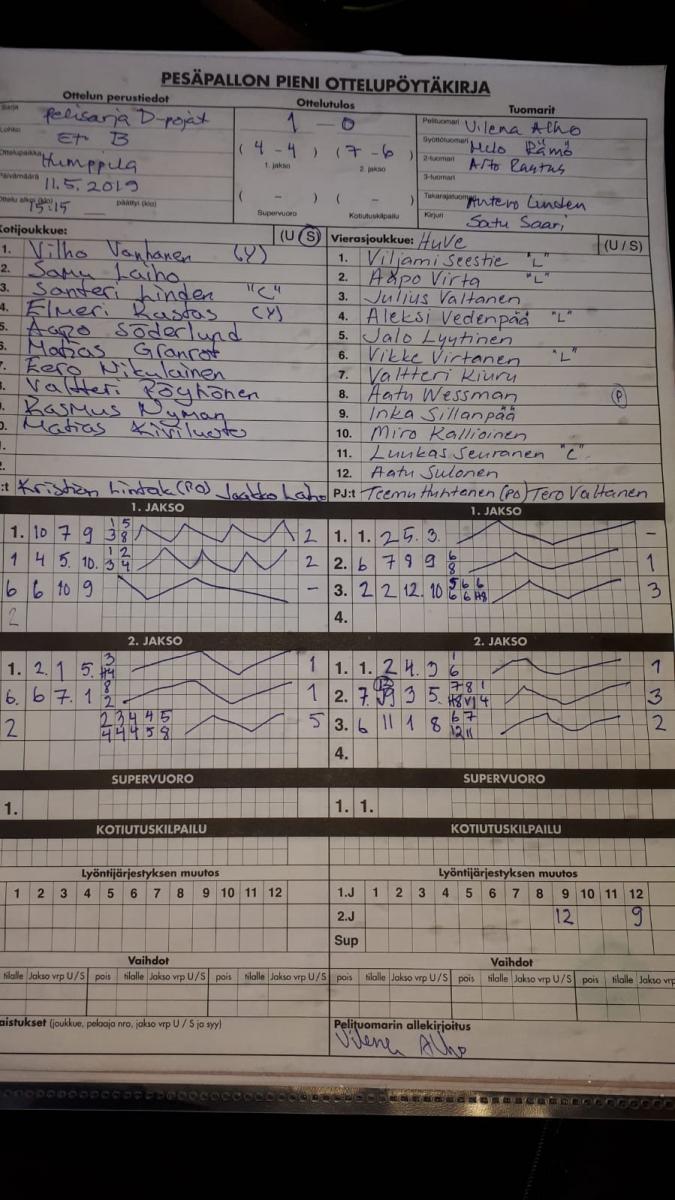 PESÄPALLON PIENI OTTELUPÖYTÄKIRJA
Ottelun perustiedot
Sarja Pelisarja D-pojat
Lohko Et B
Ottelupaikka Humppila
Päivämäärä 11.5.2019
Ottelu alkoi (klo) 15:15 päättyi (klo)
Ottelutulos
1 - 0
( 4 - 4 ) ( 7 - 6 )
1. jakso 2. jakso
( - ) ( - )
Supervuoro Kotiutuskilpailu
Tuomarit
Pelituomari Vilena Alho
Syöttötuomari Melo Rämö
2-tuomari Arto Rautus
3-tuomari
Takarajatuomari Antero Linden
Kirjuri Satu Saari
Kotijoukkue: (U / S)
1. Vilho Vanhanen (Y)
2. Samu Laiho
3. Santeri Linden "C"
4. Elmeri Rastas (Y)
5. Aapo Söderlund
6. Matias Granrot
7. Eero Nikulainen
Valtteri Pöyhönen
Rasmus Nyman
Matias Kiviluoto
Kristian Lintala (PO) Jaakko Laiho
Vierasjoukkue: HuVe (U / S)
1. Viljami Seestie "L"
2. Aapo Virta "L"
3. Julius Valtanen
4. Aleksi Vedenpää "L"
5. Jalo Lyytinen
6. Vikke Virtanen "L"
7. Valtteri Kiuru
8. Aatu Wessman (P)
9. Inka Sillanpää
10. Miro Kallioinen
11. Luukas Seuranen "C"
12. Aatu Sulonen
PJ:t Teemu Huhtanen (PO) Tero Valtanen
1. JAKSO
1. 10 7 9 1 5 3 8 2
1 4 5. 10. 1 2 3 4 2
6 6 10 9 -
2
1. JAKSO
1. 1. 2 5. 3. -
2. 6 7 8 9 6 8 1
3. 2 2 12. 10 5 6 6 6 6 H8 3
4.
2. JAKSO
1. 2. 1 5. 3 H4 1
6. 6 7. 1 8 2 1
2 2 3 4 4 5 4 4 4 5 8 5
2. JAKSO
1. 1. 2 4. 3 1 6 1
2. 7. (12) 3 5. 7 8 1 H8 V1 4 3
3. 6 11 1 8 6 7 12 11 2
4.
SUPERVUORO
1.
SUPERVUORO
1. 1.
KOTIUTUSKILPAILU
KOTIUTUSKILPAILU
Lyöntijärjestyksen muutos
1 2 3 4 5 6 7 8 9 10 11 12
Lyöntijärjestyksen muutos
1.J 1 2 3 4 5 6 7 8 9 10 11 12
2.J 12 9
Sup
Vaihdot
tilalle Jakso vrp U / S pois tilalle Jakso vrp U / S pois tilalle Jakso vrp U / S
Vaihdot
pois tilalle Jakso vrp U / S pois tilalle Jakso vrp U / S pois tilalle Jakso vrp
(joukkue, pelaaja nro, jakso vrp U / S ja syy)
Pelituomarin allekirjoitus
Vilena Alho